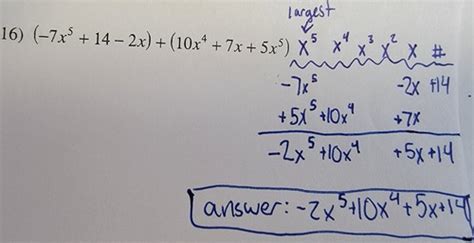 largest
16) (-7x⁵ + 14 - 2x) + (10x⁴ + 7x + 5x⁵) x⁵ x⁴ x³ x² x #
-7x⁵ -2x +14
+5x⁵ +10x⁴ +7x
-2x⁵ +10x⁴ +5x +14
answer: -2x⁵+10x⁴+5x+14